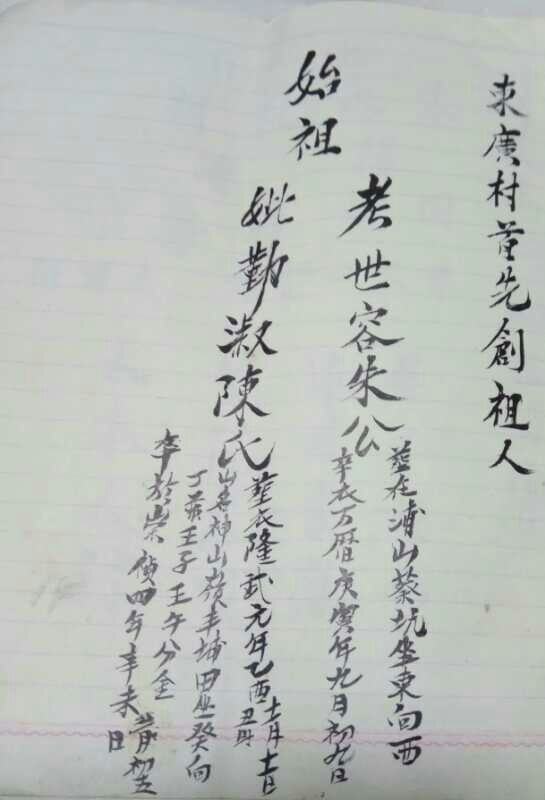 東廣村首先創祖人
始祖
考世容朱公
葬在浦山蔡坑坐東向西
卒於万曆庚寅年九月初九日
妣勤淑陳氏
葬於隆武元年乙酉十一月十一日丑時
山名神山嶺羊埔田坐癸向
丁兼壬子壬午分金
卒於崇禎四年辛未 月初五日